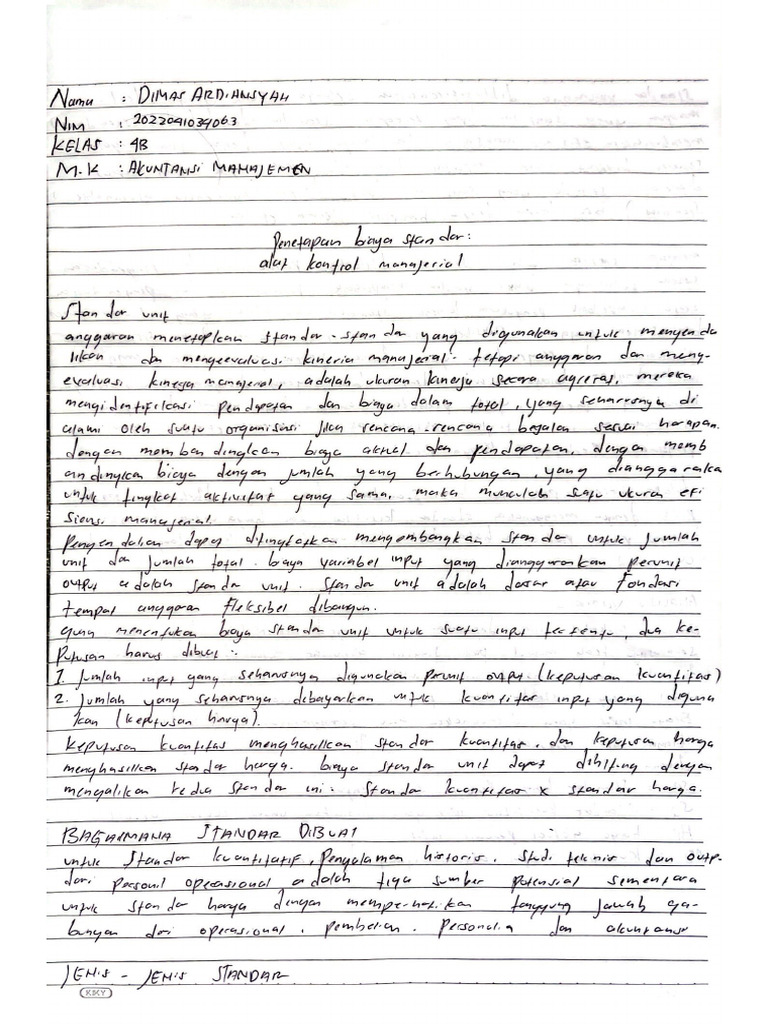 Nama : DIMAS ARDIANSYAH
NIM : 2022041034063
KELAS : 4B
M.K : AKUNTANSI MANAJEMEN
Penetapan biaya standar :
alat kontrol manajerial
Standar unit
anggaran menetapkan standar-standar yang digunakan untuk mengenda
likan dan mengeevaluasi kinerja manajerial. tetapi anggaran dan meng-
evaluasi kinerja manajerial, adalah ukuran kinerja secara agregas, mereka
mengidentifikasi pendapatan dan biaya dalam total, yang seharusnya di
alami oleh suatu organisasi jika rencana-rencana berjalan sesuai harapan.
dengan memban dingkan biaya aktual dan pendapatan, dengan memb
andingkan biaya dengan jumlah yang berhubungan, yang dianggarakan
untuk tingkat aktivitas yang sama, maka munculah suatu ukuran efi
siensi manajerial.
Pengendalian dapat ditingkatkan mengembangkan standar untuk jumlah
unit dan jumlah total. biaya variabel input yang dianggarankan perunit
output adalah standar unit. Standar unit adalah dasar atau fondasi
tempat anggaran fleksibel dibangun.
guna menentukan biaya standar unit untuk suatu input tertentu, dua ke-
putusan harus dibuat :
1. Jumlah input yang seharusnya digunakan perunit output. (keputusan kuantitas)
2. Jumlah yang seharusnya dibayarkan untuk kuantitas input yang diguna
kan (keputusan harga).
keputusan kuantitas menghasilkan standar kuantitas, dan keputusan harga
menghasilkan standar harga. biaya standar unit dapat dihitung dengan
mengalikan kedua standar ini : Standar kuantitas x standar harga.
BAGAIMANA STANDAR DIBUAT
untuk Standar kuantitatif, Pengalaman historis, studi teknis dan outp-
dari personil operasional adalah tiga sumber potensial sementara
untuk standar harga dengan memperhatikan tanggung jawab ga-
bungan dari operasional, pembelian, personalia dan akuntansi
JENIS - JENIS STANDAR
KIKY